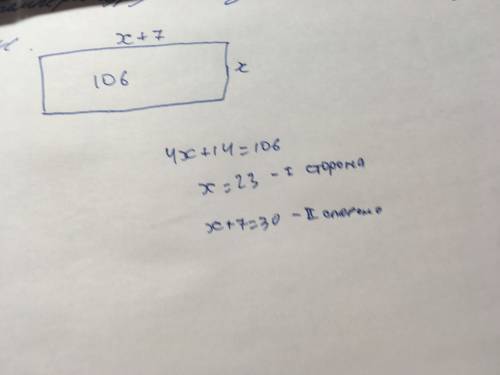 x+7
106
x
4x+14=106
x=23 - I сторона
x+7=30 - II сторона